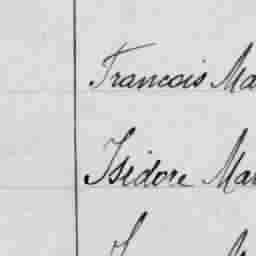 Francois Ma
Isidore Mar